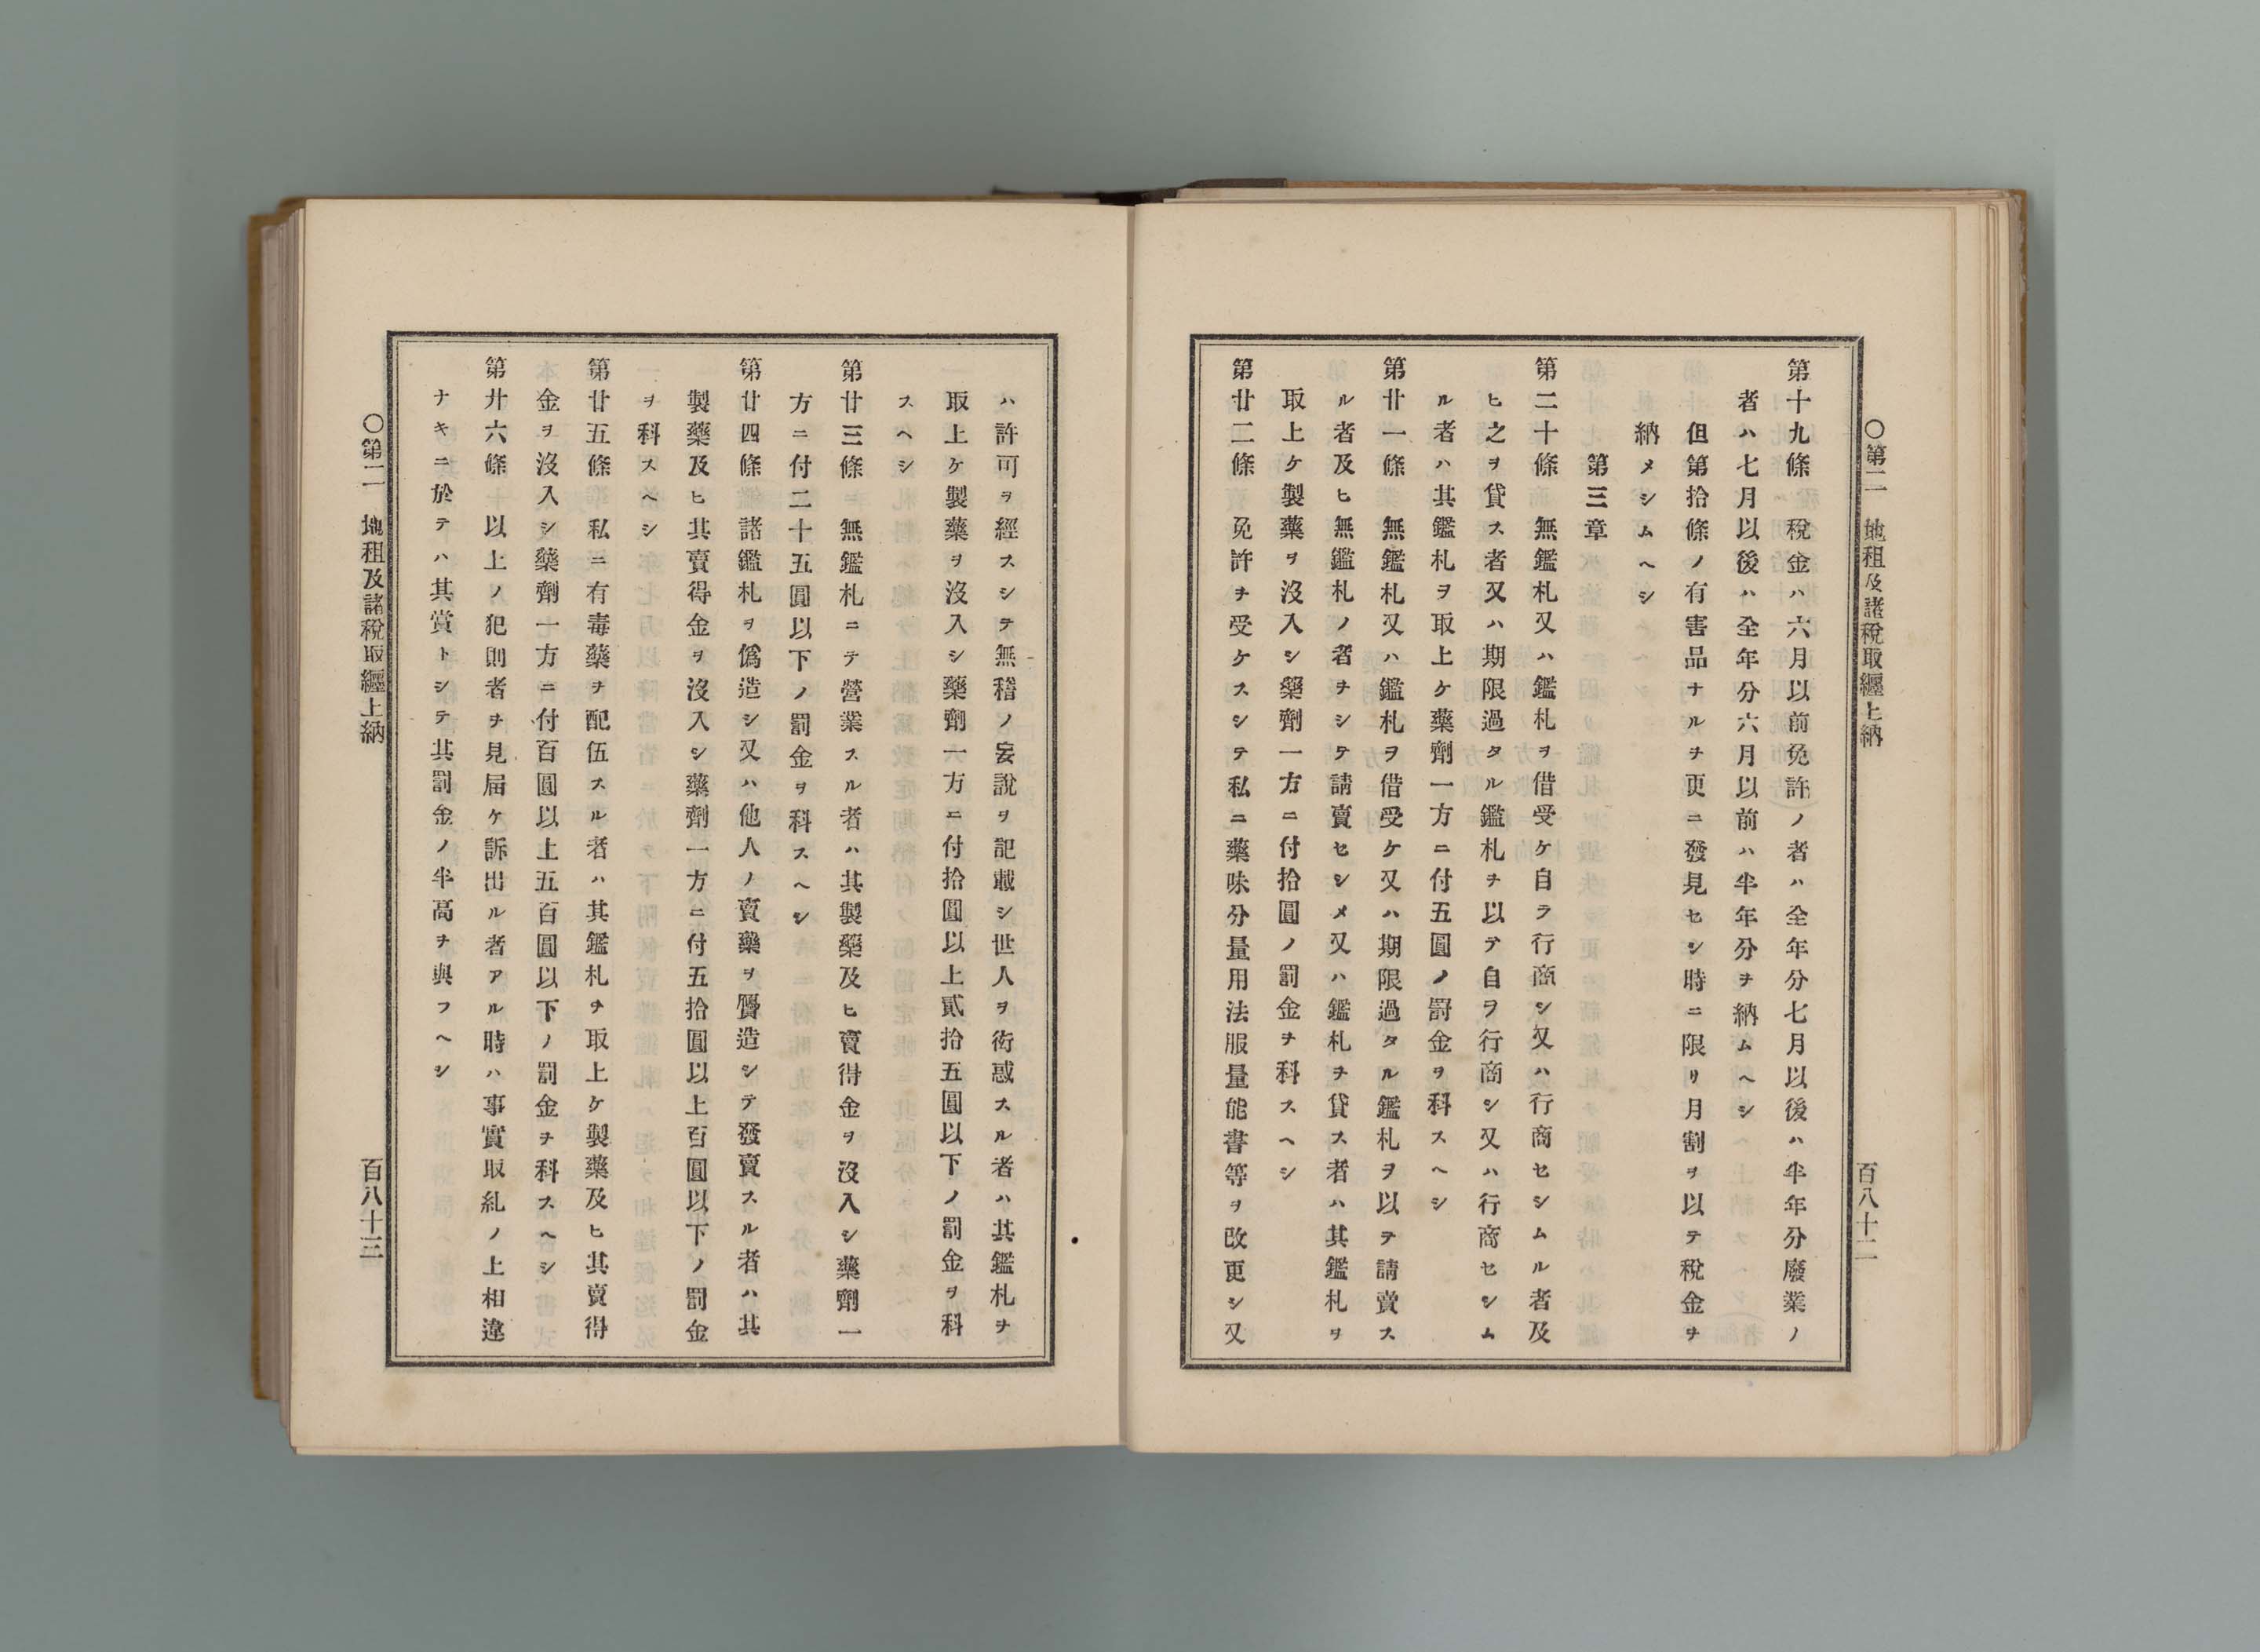 〇第二　地租及諸税取纒上納　百八十二
第十九條　税金ハ六月以前免許ノ者ハ全年分七月以後ハ半年分廢業ノ
者ハ七月以後ハ全年分六月以前ハ半年分ヲ納ムヘシ
但第拾條ノ有害品ナルヲ更ニ發見セシ時ニ限リ月割ヲ以テ税金ヲ
納メシムヘシ
第三章
第二十條　無鑑札又ハ鑑札ヲ借受ケ自ラ行商シ又ハ行商セシムル者及
ヒ之ヲ貸ス者又ハ期限過タル鑑札ヲ以テ自ヲ行商シ又ハ行商セシム
ル者ハ其鑑札ヲ取上ケ藥劑一方ニ付五圓ノ罰金ヲ科スヘシ
第廿一條　無鑑札又ハ鑑札ヲ借受ケ又ハ期限過タル鑑札ヲ以テ請賣ス
ル者及ヒ無鑑札ノ者ヲシテ請賣セシメ又ハ鑑札ヲ貸ス者ハ其鑑札ヲ
取上ケ製藥ヲ沒入シ藥劑一方ニ付拾圓ノ罰金ヲ科スヘシ
第廿二條　免許ヲ受ケスシテ私ニ藥味分量用法服量能書等ヲ改更シ又
ハ許可ヲ經スシテ無稽ノ妄說ヲ記載シ世人ヲ衒惑スル者ハ其鑑札ヲ
取上ケ製藥ヲ沒入シ藥劑一方ニ付拾圓以上貳拾五圓以下ノ罰金ヲ科
スヘシ
第廿三條　無鑑札ニテ營業スル者ハ其製藥及ヒ賣得金ヲ沒入シ藥劑一
方ニ付二十五圓以下ノ罰金ヲ科スヘシ
第廿四條　諸鑑札ヲ僞造シ又ハ他人ノ賣藥ヲ贋造シテ發賣スル者ハ其
製藥及ヒ其賣得金ヲ沒入シ藥劑一方ニ付五拾圓以上百圓以下ノ罰金
ヲ科スヘシ
第廿五條　私ニ有毒藥ヲ配伍スル者ハ其鑑札ヲ取上ケ製藥及ヒ其賣得
金ヲ沒入シ藥劑一方ニ付百圓以上五百圓以下ノ罰金ヲ科スヘシ
第廿六條　以上ノ犯則者ヲ見届ケ訴出ル者アル時ハ事實取糺ノ上相違
ナキニ於テハ其賞トシテ其罰金ノ半高ヲ與フヘシ
〇第二　地租及諸税取纒上納　百八十三